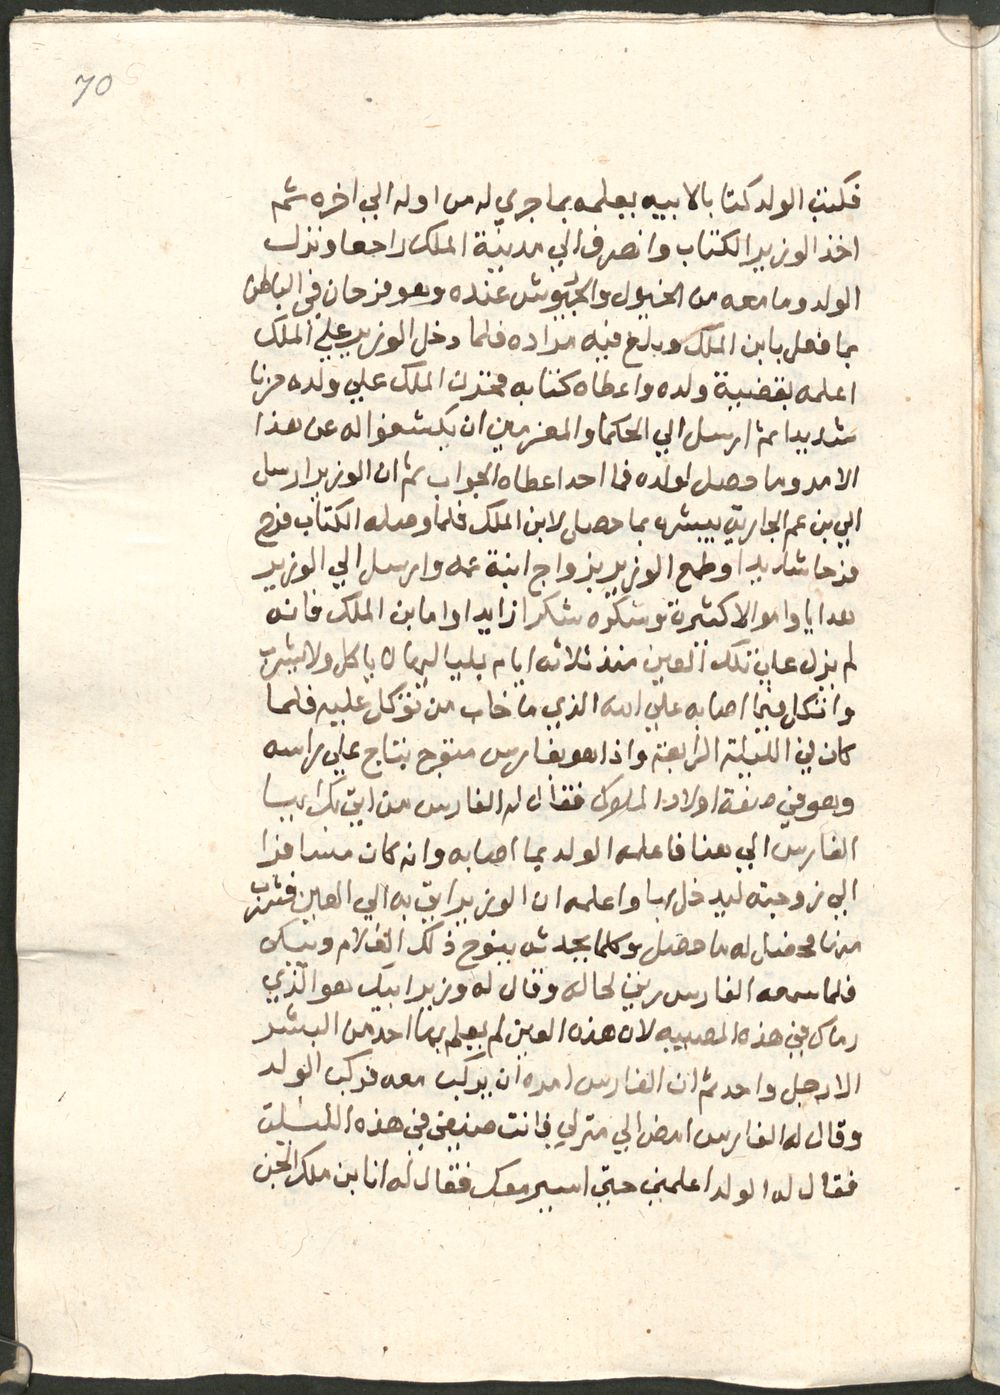 70
فكتب الولد كتابا لابيه يعلمه بما جري له من اوله الي اخره ثم
اخذ الوزير الكتاب وانصرف الي مدينة الملك راجعا ونزل
الولد وما معه من الخيول والجيوش عنده وهو فرحان في الباطن
بما فعل بابن الملك وبلغ فيه مراده فلما دخل الوزير علي الملك
اعلمه بقضية ولده واعطاه كتابه فحزن الملك علي ولده حزنا
شديدا ثم ارسل الي الحكما والمعزمين ان يكشفوا له عن هذا
الامر وما حصل لولده فما احد اعطاه الجواب ثم ان الوزير ارسل
الي بن عم الجارية يبشره بما حصل لابن الملك فلما وصله الكتاب فرح
فرحا شديدا وطمع الوزير بزواج ابنة عمه وارسل الي الوزير
هدايا واموالا كثيرة وشكره شكرا زايدا واما بن الملك فانه
لم يزل علي تلك العين منذ ثلاثه ايام بلياليها لا ياكل ولا يشرب
واتكل فيما اصابه علي الله الذي ما خاب من توكل عليه فلما
كان في الليلة الرابعة واذا هو بفارس متوج بتاج علي راسه
وهو في صفة اولاد الملوك فقال له الفارس من اتي بك ايها
الفارس الي هنا فاعلمه الولد بما اصابه وانه كان مسافرا
الي زوجته ليدخل بها واعلمه ان الوزير اتي به الي العين فشرب
منها فحصل له ما حصل وكلما يحدثه ينوح ذلك الغلام ويبكي
فلما سمعه الفارس رثي لحاله وقال له وزير ابيك هو الذي
رماك في هذه المصيبه لان هذه العين لم يعلم بها احد من البشر
الا رجل واحد ثم ان الفارس امره ان يركب معه فركب الولد
وقال له الفارس امض الي منزلي فانت ضيفي في هذه الليلة
فقال له الولد اعلمني حتي اسير معك فقال له انا بن ملك الجن